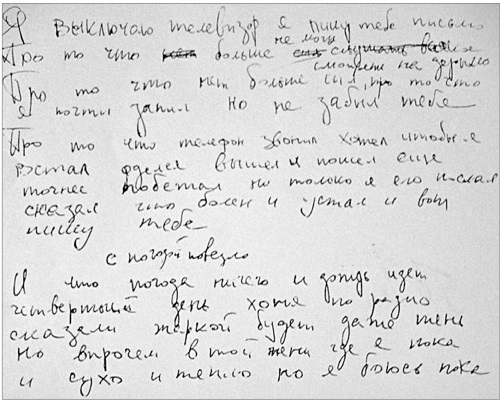 Я выключаю телевизор я пишу тебе письмо
не могу
Про то что больше
смотреть на дерьмо
Про то что нет больше сил, про то что
я почти запил но не забыл тебя
Про то что телефон звонил хотел чтобы я
встал оделся вышел и пошел еще
точнее побежал но только я его послал
сказал что болен и устал и вот
пишу тебе
с погодой повезло
И что погода ничего и дождь идет
четвертый день хотя по радио
сказали жаркой будет даже тень
но впрочем в той тени где я пока
и сухо и тепло но я боюсь пока